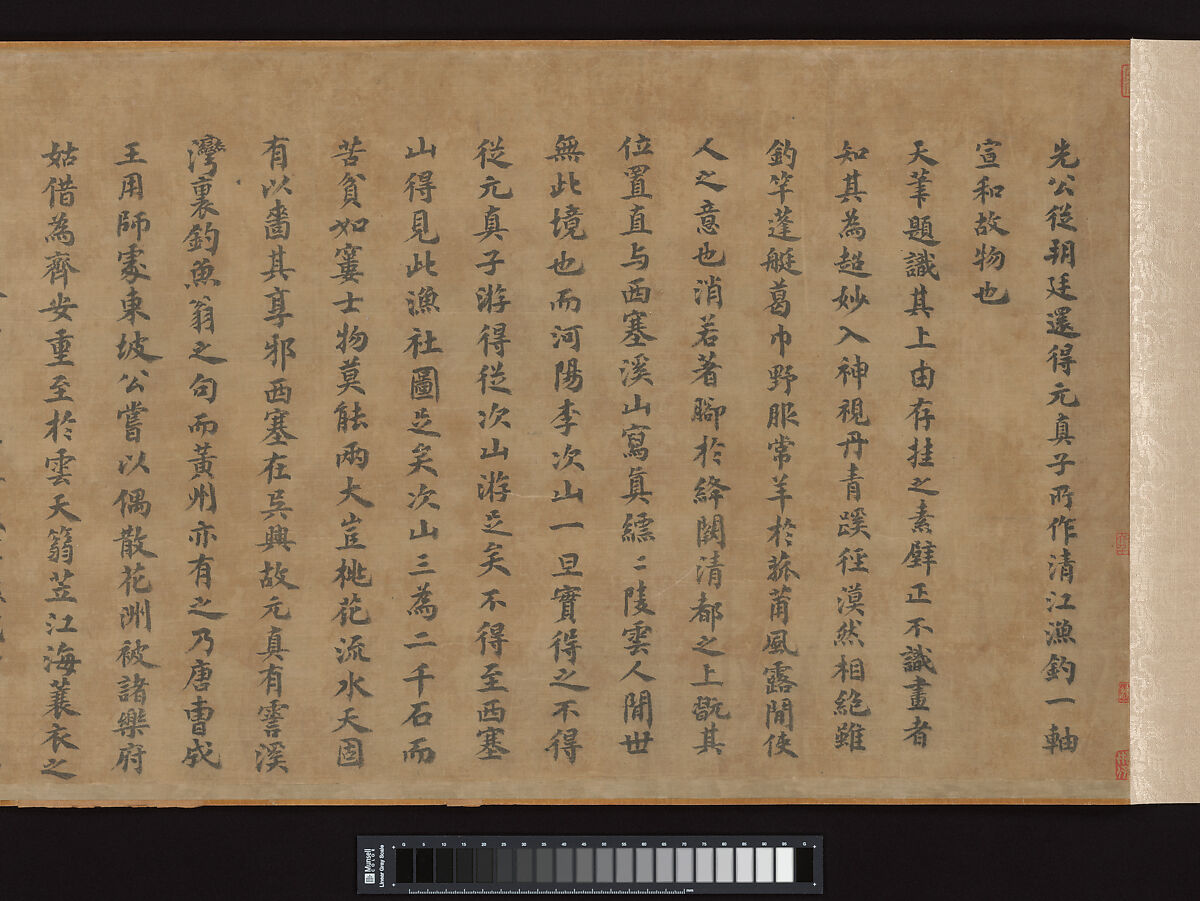 先公從朝廷還得元真子所作清江漁釣一軸
宣和故物也
天筆題識其上由存挂之素壁正不識畫者
知其為超妙入神視丹青蹊徑漠然相絕雖
釣竿蓬艇葛巾野服常羊於菰莆風露閒使
人之意也消若著腳於絳闕清都之上翫其
位置直与西塞溪山寫真縹二陵雲人閒世
無此境也而河陽李次山一旦實得之不得
從元真子游得從次山游足矣不得至西塞
山得見此漁社圖足矣次山三為二千石而
苦貧如窶士物莫能兩大豈桃花流水天固
有以嗇其享邪西塞在吳興故元真有霅溪
灣裏釣魚翁之句而黃州亦有之乃唐曹成
王用師處東坡公嘗以偶散花洲被諸樂府
姑借為齊安重至於雲天篛笠江海蓑衣之
Munsell COLOR
Linear Gray Scale
0 5 10 15 20 25 30 35 40 45 50 55 60 65 70 75 80 85 90 95 G
mm